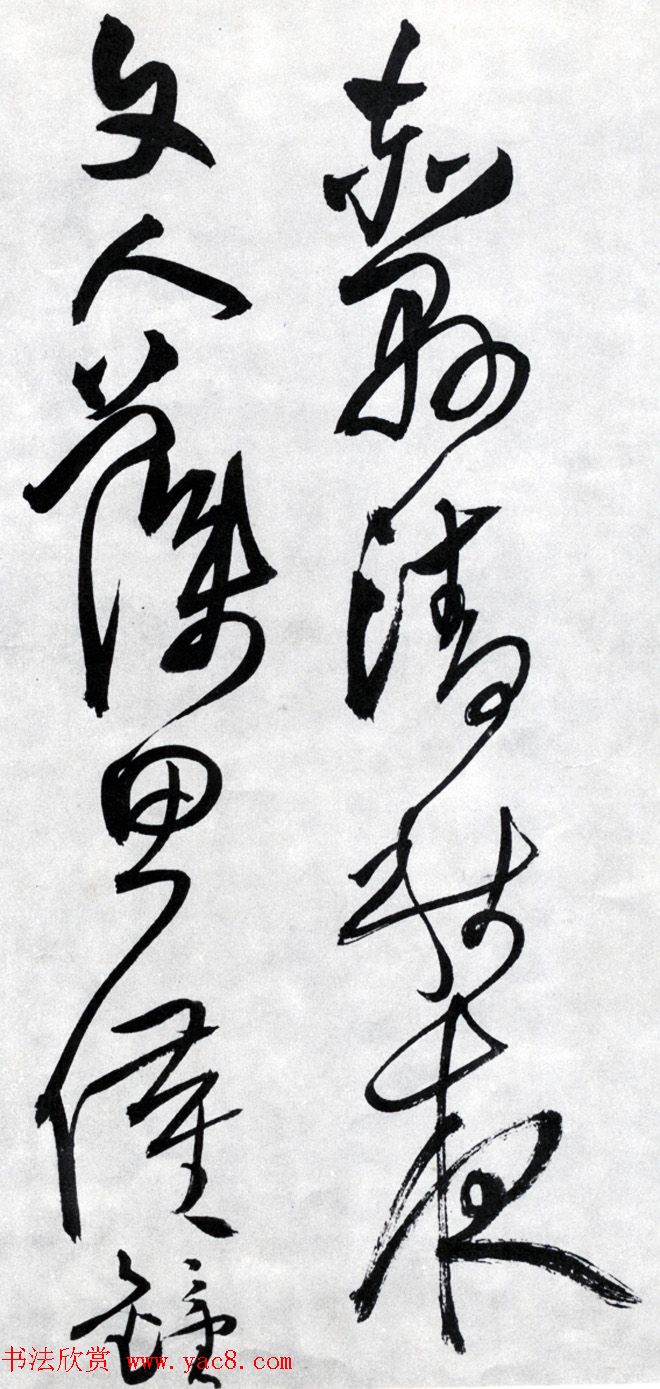 赤縣清秋夜
文人藻思催鐘
书法欣赏 www.yac8.com